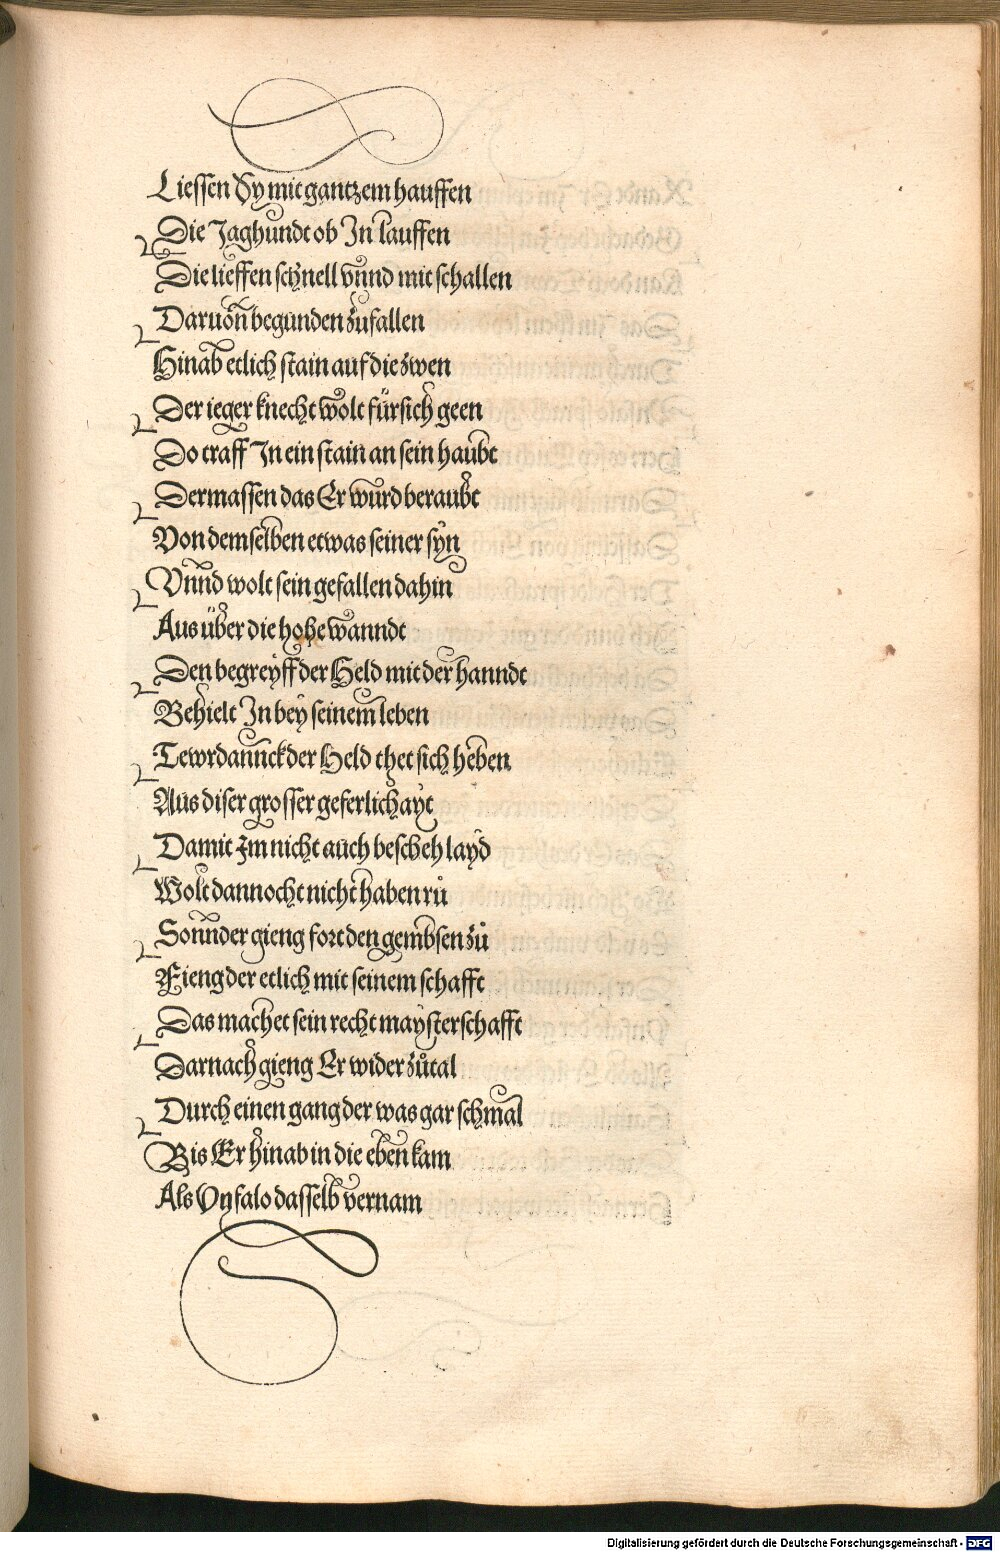 Liessen Sy mit gantzem hauffen
Die Jaghundt ob In lauffen
Die lieffen schnell vnnd mit schallen
Daruon begunden zufallen
Hinab etlich stain auf die zwen
Der ieger knecht wolt fürsich geen
Do traff In ein stain an sein haubt
Dermassen das Er wurd beraubt
Von demselben etwas seiner syn
Vnnd wolt sein gefallen dahin
Aus über die hohe wanndt
Den begreyff der Held mit der hanndt
Behielt In bey seinem leben
Tewrdannck der Held thet sich heben
Aus diser grosser geferlichayt
Damit Im nicht auch bescheh layd
Wolt dannocht nicht haben rů
Sonnder gieng fort den gembsen zů
Fieng der etlich mit seinem schafft
Das machet sein recht maysterschafft
Darnach gieng Er wider zůtal
Durch einen gang der was gar schmal
Bis Er hinab in die eben kam
Als Vnfalo dasselb vernam
Digitalisierung gefördert durch die Deutsche Forschungsgemeinschaft - DFG